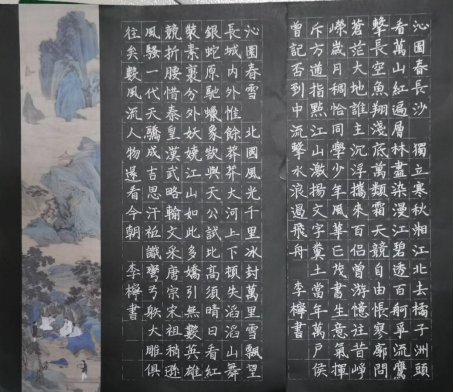 沁園春長沙 獨立寒秋湘江北去橘子洲頭
看萬山紅遍層林盡染漫江碧透百舸爭流鷹
擊長空魚翔淺底萬類霜天競自由悵寥廓問
蒼茫大地誰主沉浮攜來百侶曾遊憶往昔崢
嶸歲月稠恰同學少年風華正茂書生意氣揮
斥方遒指點江山激揚文字糞土當年萬戶侯
曾記否到中流擊水浪遏飛舟 李檸書
沁園春雪 北國風光千里冰封萬里雪飄望
長城內外惟餘莽莽大河上下頓失滔滔山舞
銀蛇原馳蠟象欲與天公試比高須晴日看紅
裝素裹分外妖嬈江山如此多嬌引無數英雄
競折腰惜秦皇漢武略輸文采唐宗宋祖稍遜
風騷一代天驕成吉思汗祗識彎弓射大雕俱
往矣數風流人物還看今朝 李檸書